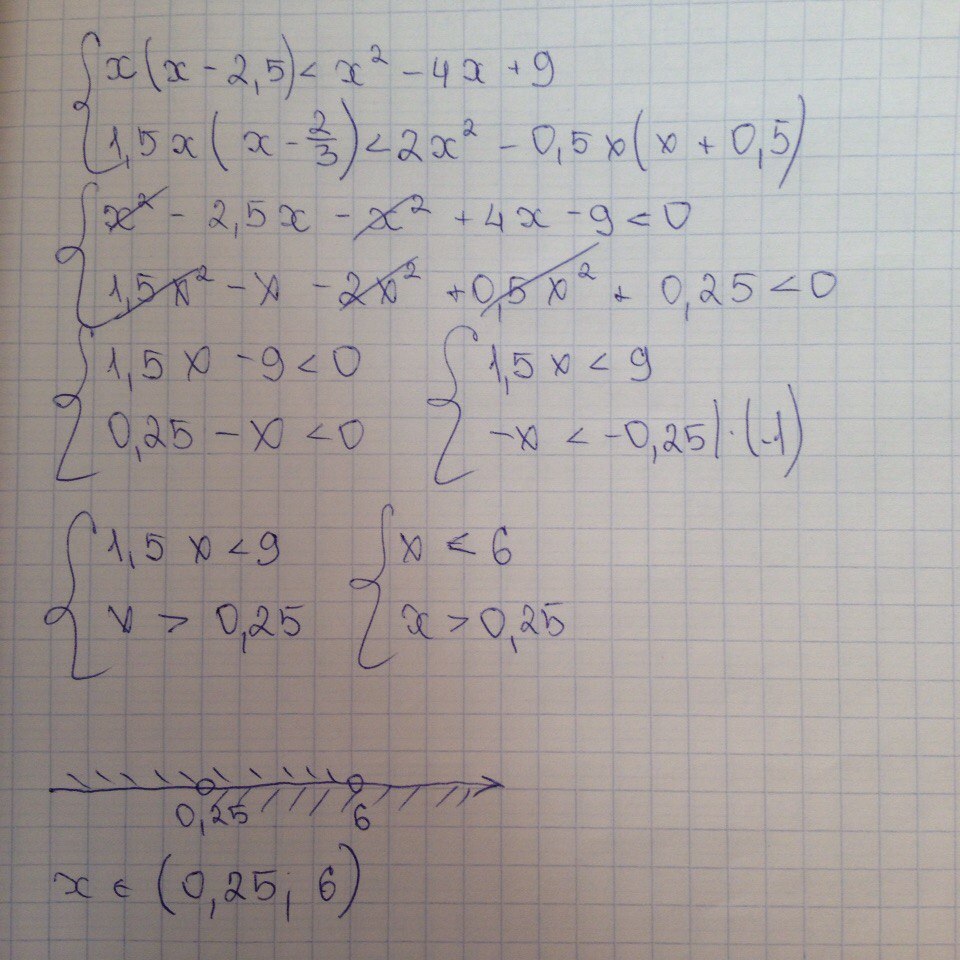 { x(x - 2,5) < x² - 4x + 9
1,5x( x - 2/3 ) < 2x² - 0,5x(x + 0,5)
{ x² - 2,5x - x² + 4x - 9 < 0
1,5x² - x - 2x² + 0,5x² + 0,25 < 0
{ 1,5x - 9 < 0 { 1,5x < 9
0,25 - x < 0 -x < -0,25 | · (-1)
{ 1,5x < 9 { x < 6
x > 0,25 x > 0,25
0,25 6
x ∈ (0,25; 6)